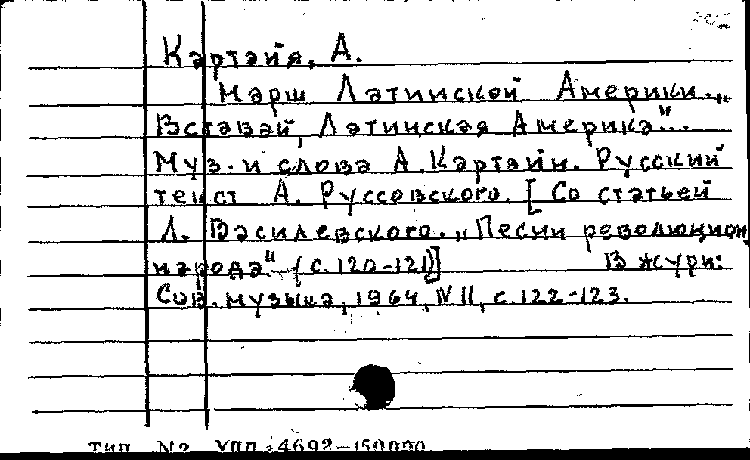 Картайя, А.
Марш Латинской Америки. „
Вставай, Латинская Америка"..
Муз. и слова А. Картайи. Русский
текст А. Руссовского. [Со статьей
Л. Василевского. „Песни революцион
народа" (с.120-121)] В журн:
Сов. музыка, 1964, N11, с. 122-123.
тип N2 УПП. 4692-150000